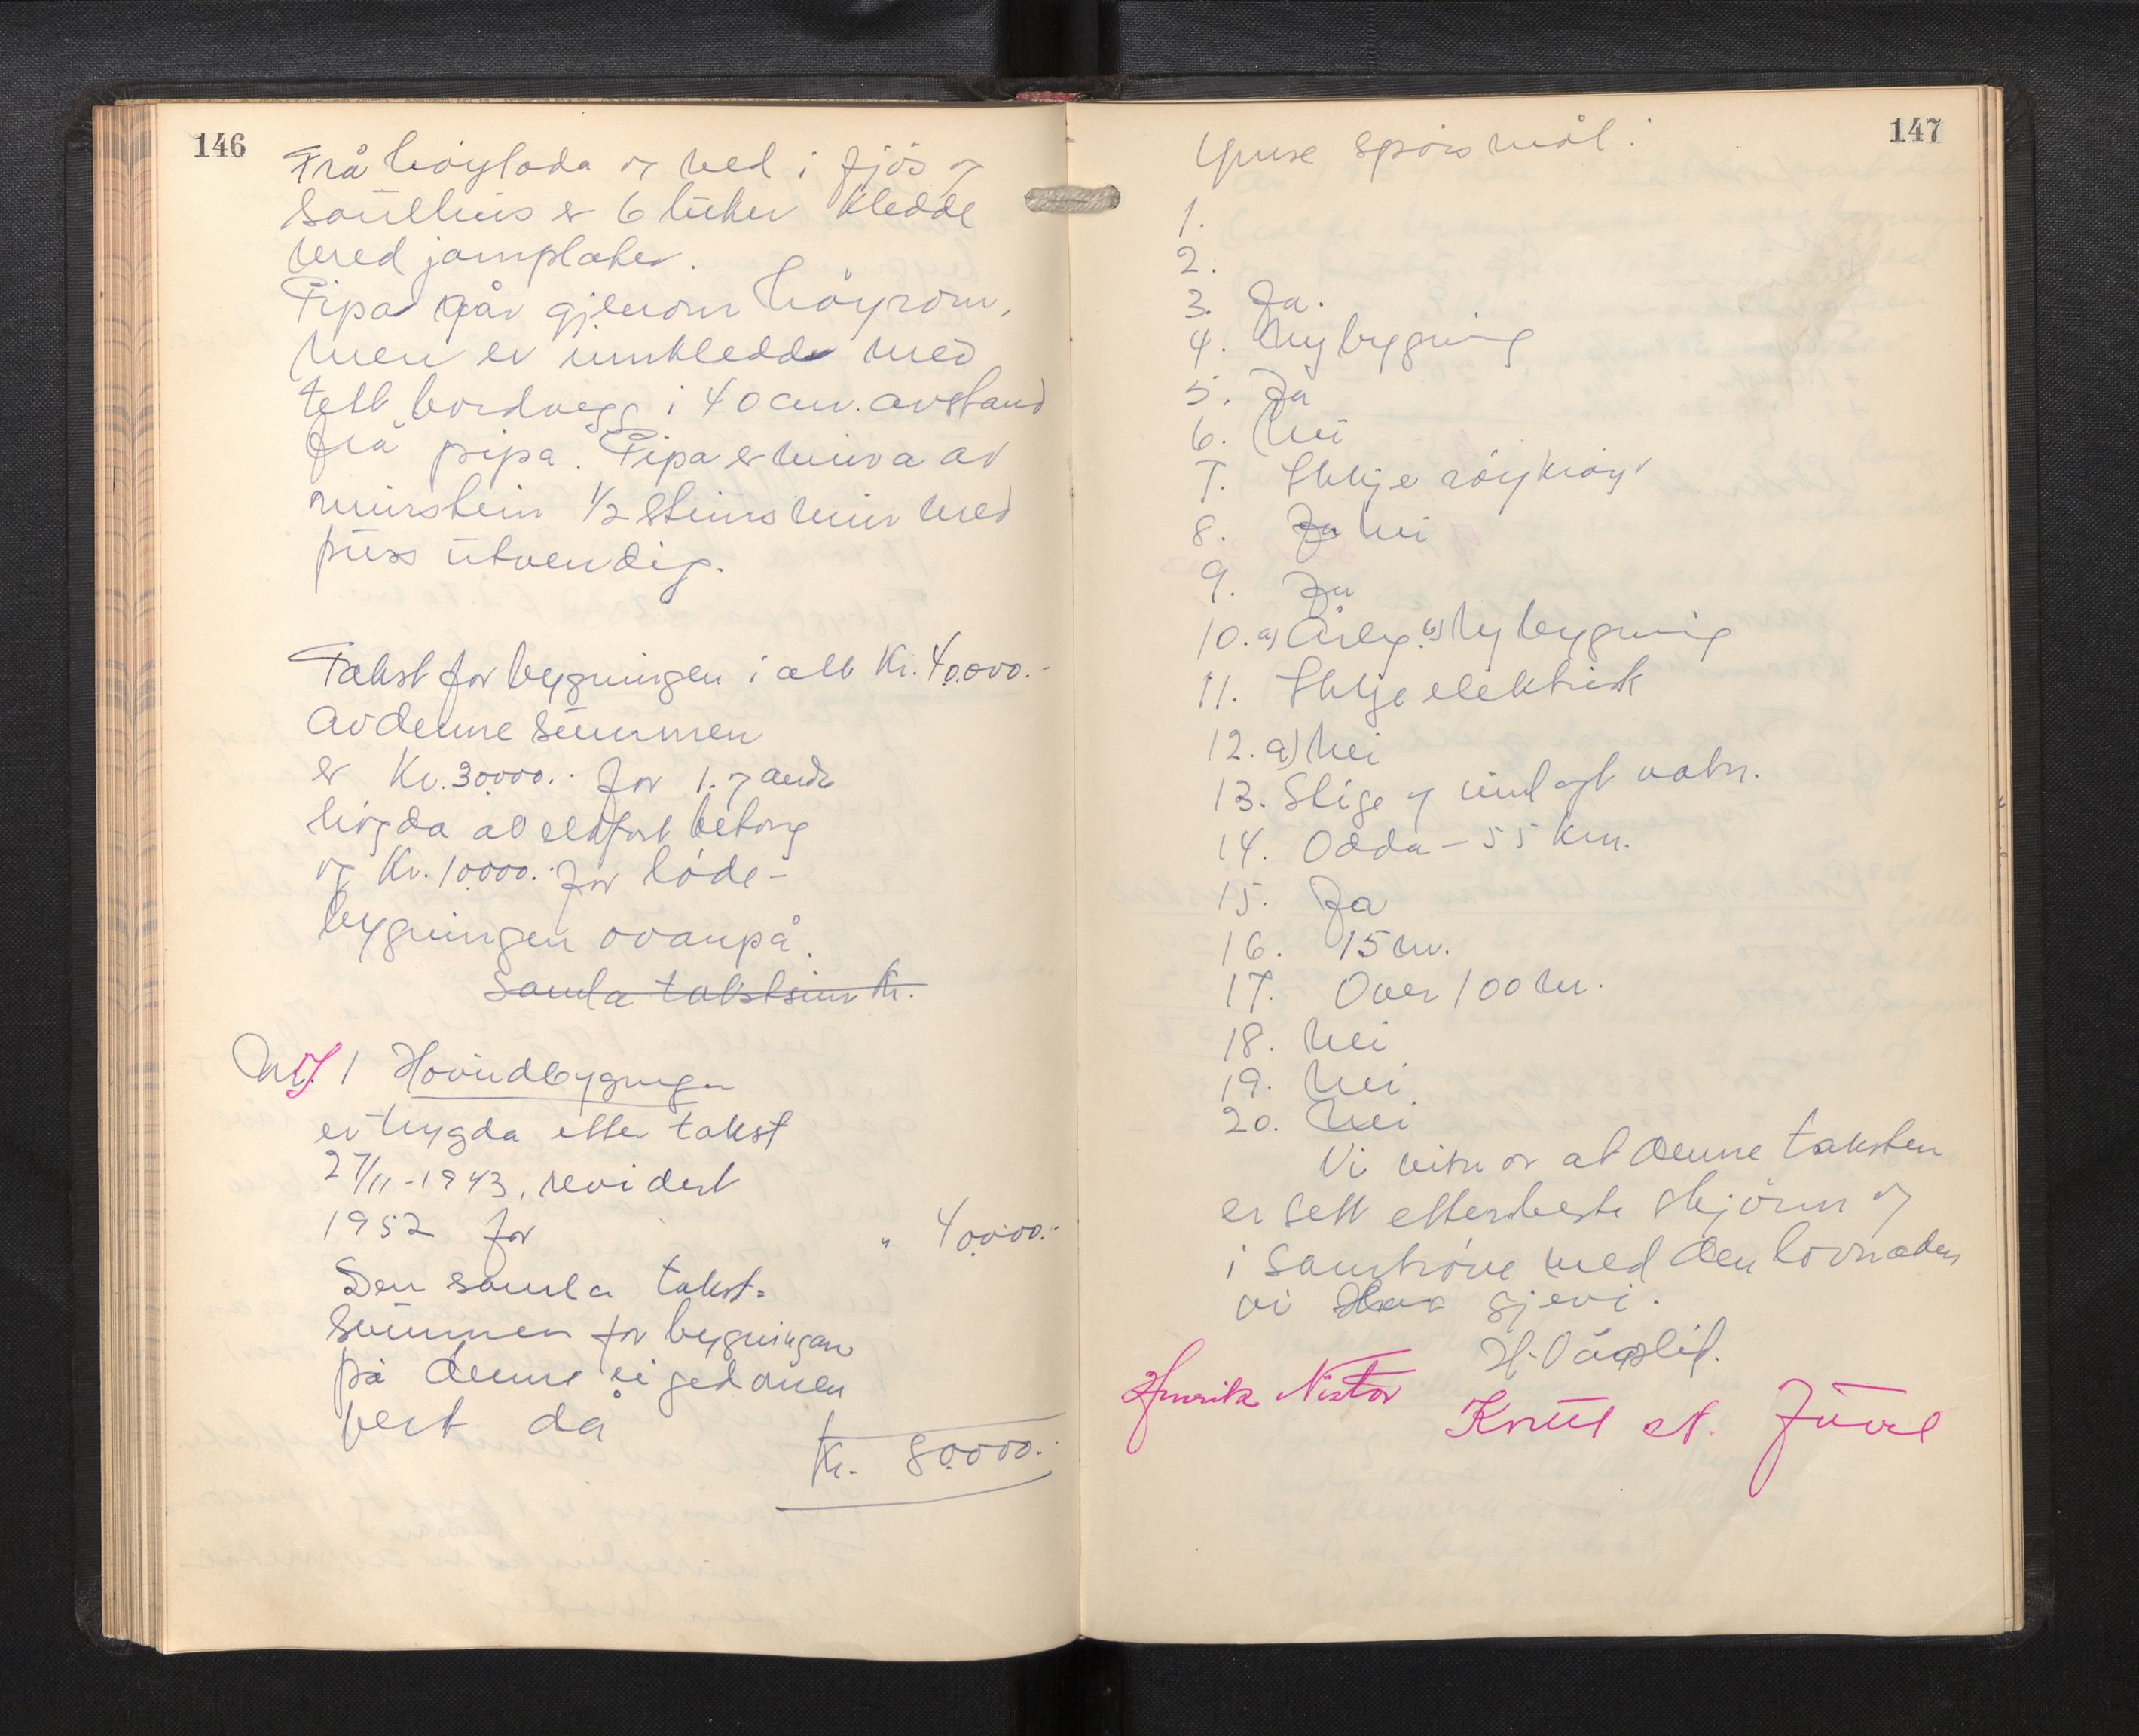 146
Frå høyloda og ned i fjøs og
sauehus er 6 luker kledde
med jarnplater.
Pipa går gjenom høyrom,
men er innkledde med
tett bordvegg i 40 cm. avstand
frå pipa. Pipa er mura av
murstein 1/2 steins mur med
puss utvendig.
Takst for bygningen i alt Kr. 40.000.-
av denne summen
er Kr. 30000.- for 1. og andre
høgda
og Kr. 10000.- for løde-
bygningen ovanpå.
Samla takstsum Kr.
Nr. 1 Hovudbygningen
er trygda etter takst
27/11-1943, revidert
1952 for " 40000.-
Den samla takst-
summen for bygningane
på denne eigedomen
vert då
Kr. 80000.-
147
Ymse spørsmål:
1.
2.
3. Ja.
4. Nybygning
5. Ja
6. Nei
7. Ikkje røykrøyr
8. Ja Nei
9. Ja
10. a) Årleg b) Nybygning
11. Ikkje elektrisk
12. a) Nei
13. Stige og innlagt vatn.
14. Odda - 55 km.
15. Ja
16. 15 m.
17. Over 100 m.
18. Nei
19. Nei
20. Nei
Vi vitnar at denne taksten
er sett etter beste skjønn og
i samhøve med den lovnaden
vi har gjevi.
Henrik Nistov Knut